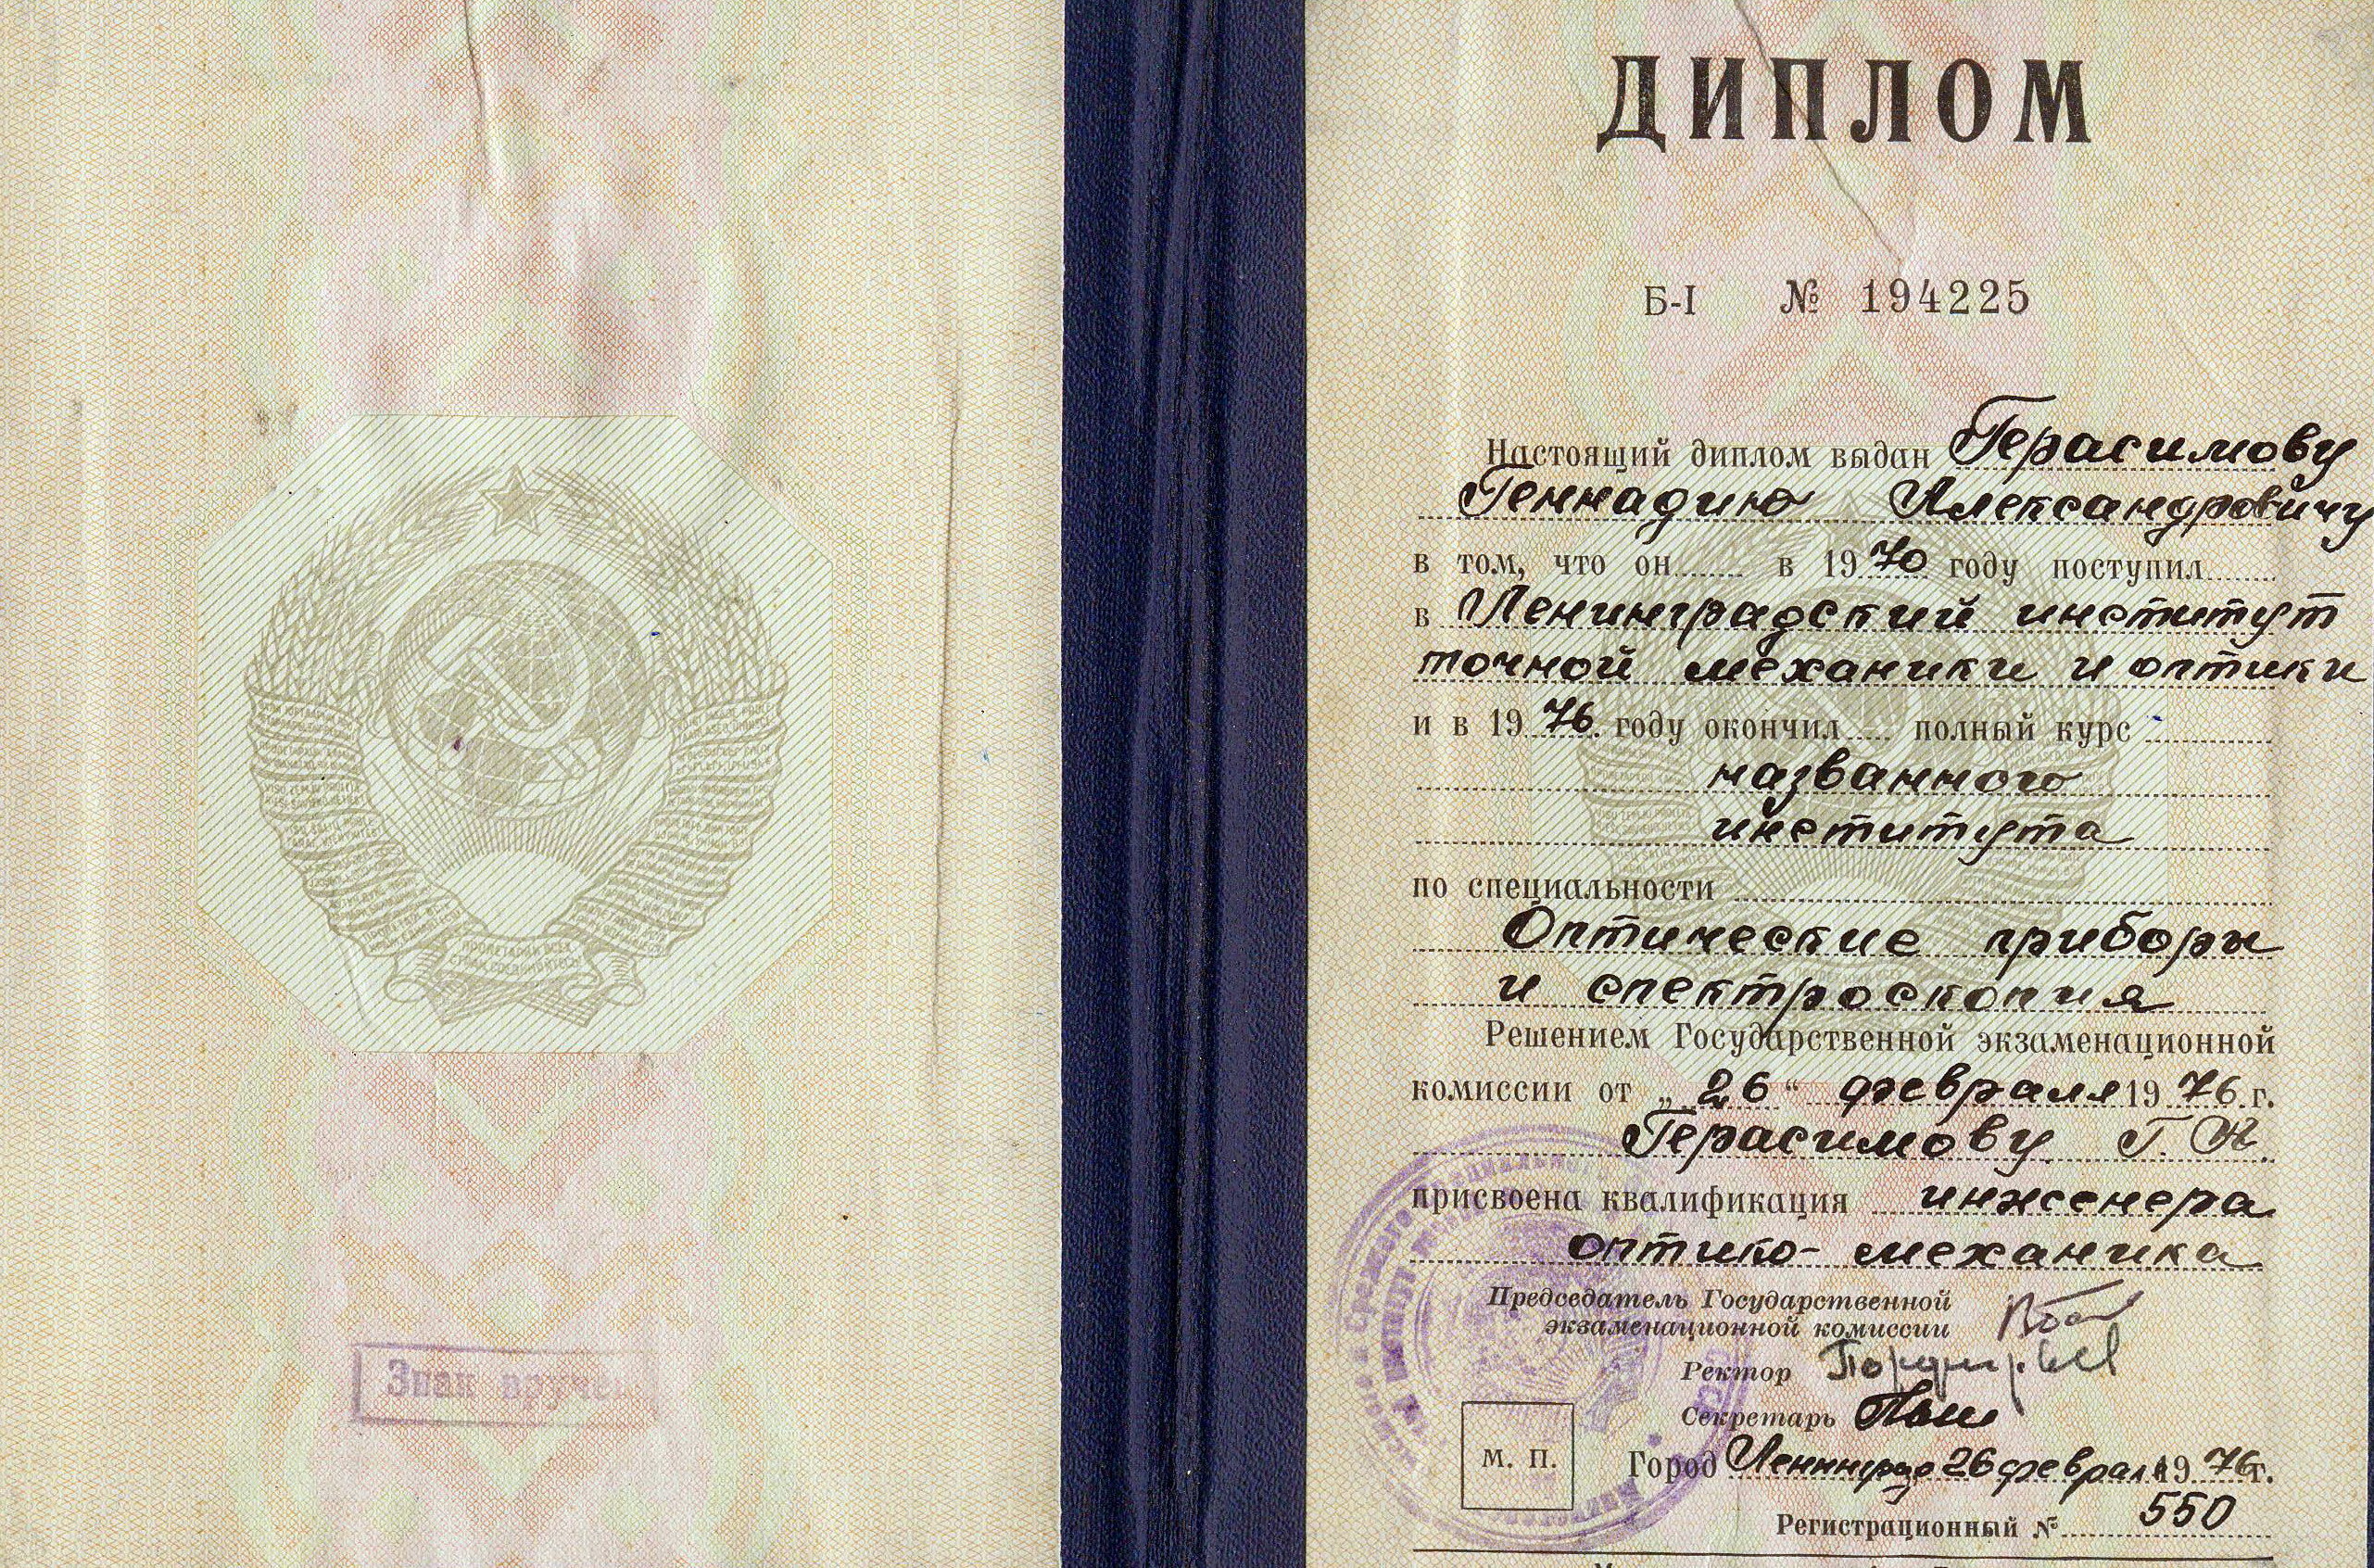 Знак вручен
ДИПЛОМ
Б-I № 194225
Настоящий диплом выдан Герасимову
Геннадию Александровичу
в том, что он в 1970 году поступил
в Ленинградский институт
точной механики и оптики
и в 1976. году окончил полный курс
названного
института
по специальности
Оптические приборы
и спектроскопия
Решением Государственной экзаменационной
комиссии от „26“ февраля 1976.г.
Герасимову Г. А.
присвоена квалификация инженера
оптико-механика
Председатель Государственной
экзаменационной комиссии
Ректор
Секретарь
М. П.
Город Ленинград 26 февраля 1976г.
Регистрационный № 550